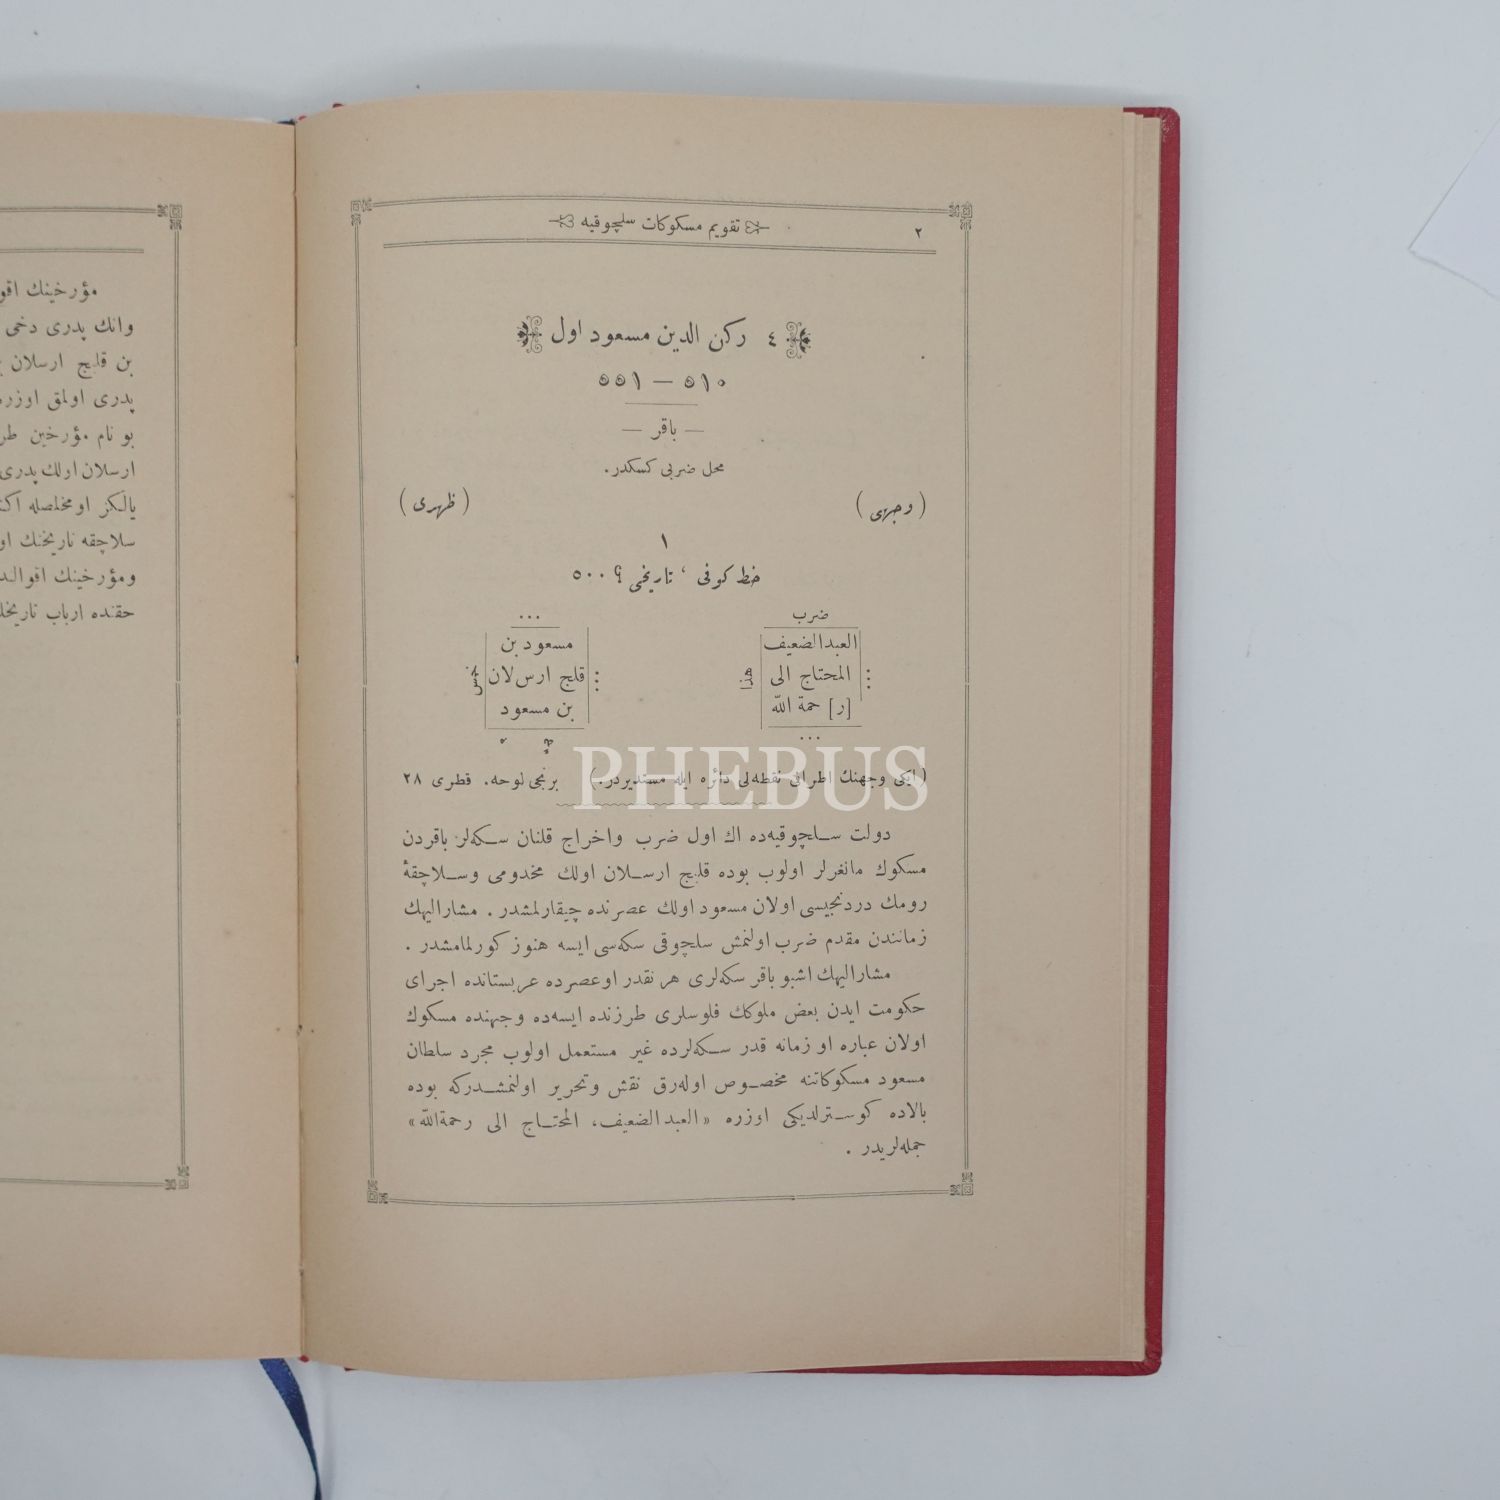 ٢
تقويم مسكوكات سلچوقيه
٤ ركن الدين مسعود اول
٥١٠ — ٥٥١
— باقر —
محل ضربى كسكدر.
(وجهى) (ظهرى)
١
خط كوفى ، تاريخى ؟ ٥٠٠
ضرب
العبدالضعيف
المحتاج الى
[ر] حمة الله
هذا
...
...
مسعود بن
قلج ارسلان
بن مسعود
(ايكى وجهنك اطرافى نقطه‌لى دائره ايله مستديردر.) برنجى لوحه. قطرى ٢٨
دولت سلچوقيه‌ده اك اول ضرب واخراج قلنان سكه‌لر باقردن
مسكوك مانغرلر اولوب بوده قليج ارسلان اولك مخدومى وسلاچقۀ
رومك دردنجيسى اولان مسعود اولك عصرنده چيقارلمشدر . مشاراليهك
زمانندن مقدم ضرب اولنمش سلچوقى سكه‌سى ايسه هنوز كورلمامشدر .
مشاراليهك اشبو باقر سكه‌لرى هر نقدر اوعصرده عربستانده اجراى
حكومت ايدن بعض ملوكك فلوسلرى طرزنده ايسه‌ده وجهنده مسكوك
اولان عباره او زمانه قدر سكه‌لرده غير مستعمل اولوب مجرد سلطان
مسعود مسكوكاتنه مخصوص اوله‌رق نقش وتحرير اولنمشدركه بوده
بالاده كوسترلديكى اوزره «العبد الضعيف، المحتاج الى رحمة‌الله»
جمله‌لريدر .
مؤرخينك
وانك پدرى دخى
بن قليج ارسلان
پدرى اولمق اوزره
بو نام مؤرخين
ارسلان اولك پدرى
يالكز اومخلصله
سلاچقه تاريخنك
ومؤرخينك
حقنده ارباب
PHEBUS